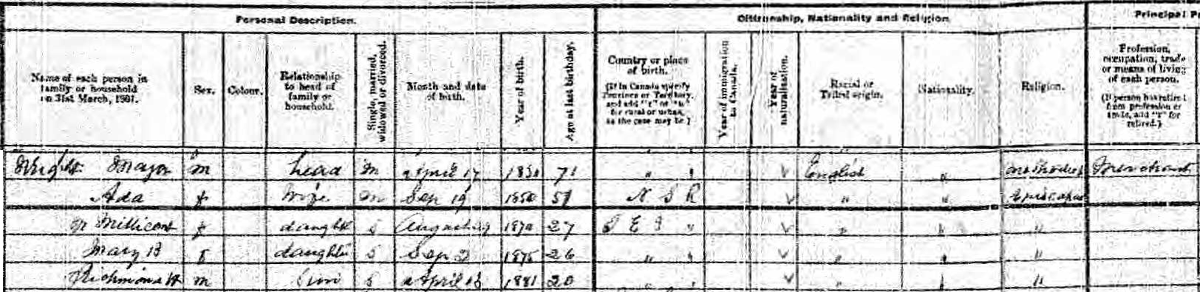 Personal Description. Citizenship, Nationality and Religion Principal P
Name of each person in family or household on 31st March, 1901. Sex. Colour. Relationship to head of family or household. Single, married, widowed or divorced. Month and date of birth. Year of birth. Age at last birthday. Country or place of birth. (If in Canada specify Province or Territory, and add "r" or "u" for rural or urban, as the case may be.) Year of immigration to Canada. Year of naturalization. Racial or Tribal origin. Nationality. Religion. Profession, occupation, trade or means of living of each person. (If person has retired from profession or trade, add "r" for retired.)
Wright Major m head m April 17 71 " " English " Methodist Merchant
Ada f Wife m Sep 19 1850 51 N S R " " Episcopal
Millicent f daught S August 27 P E I " " " "
Mary B f daughter S Sep 2 1875 26 " " " " "
Richmond H m Son S April 18 1881 20 " " " " "